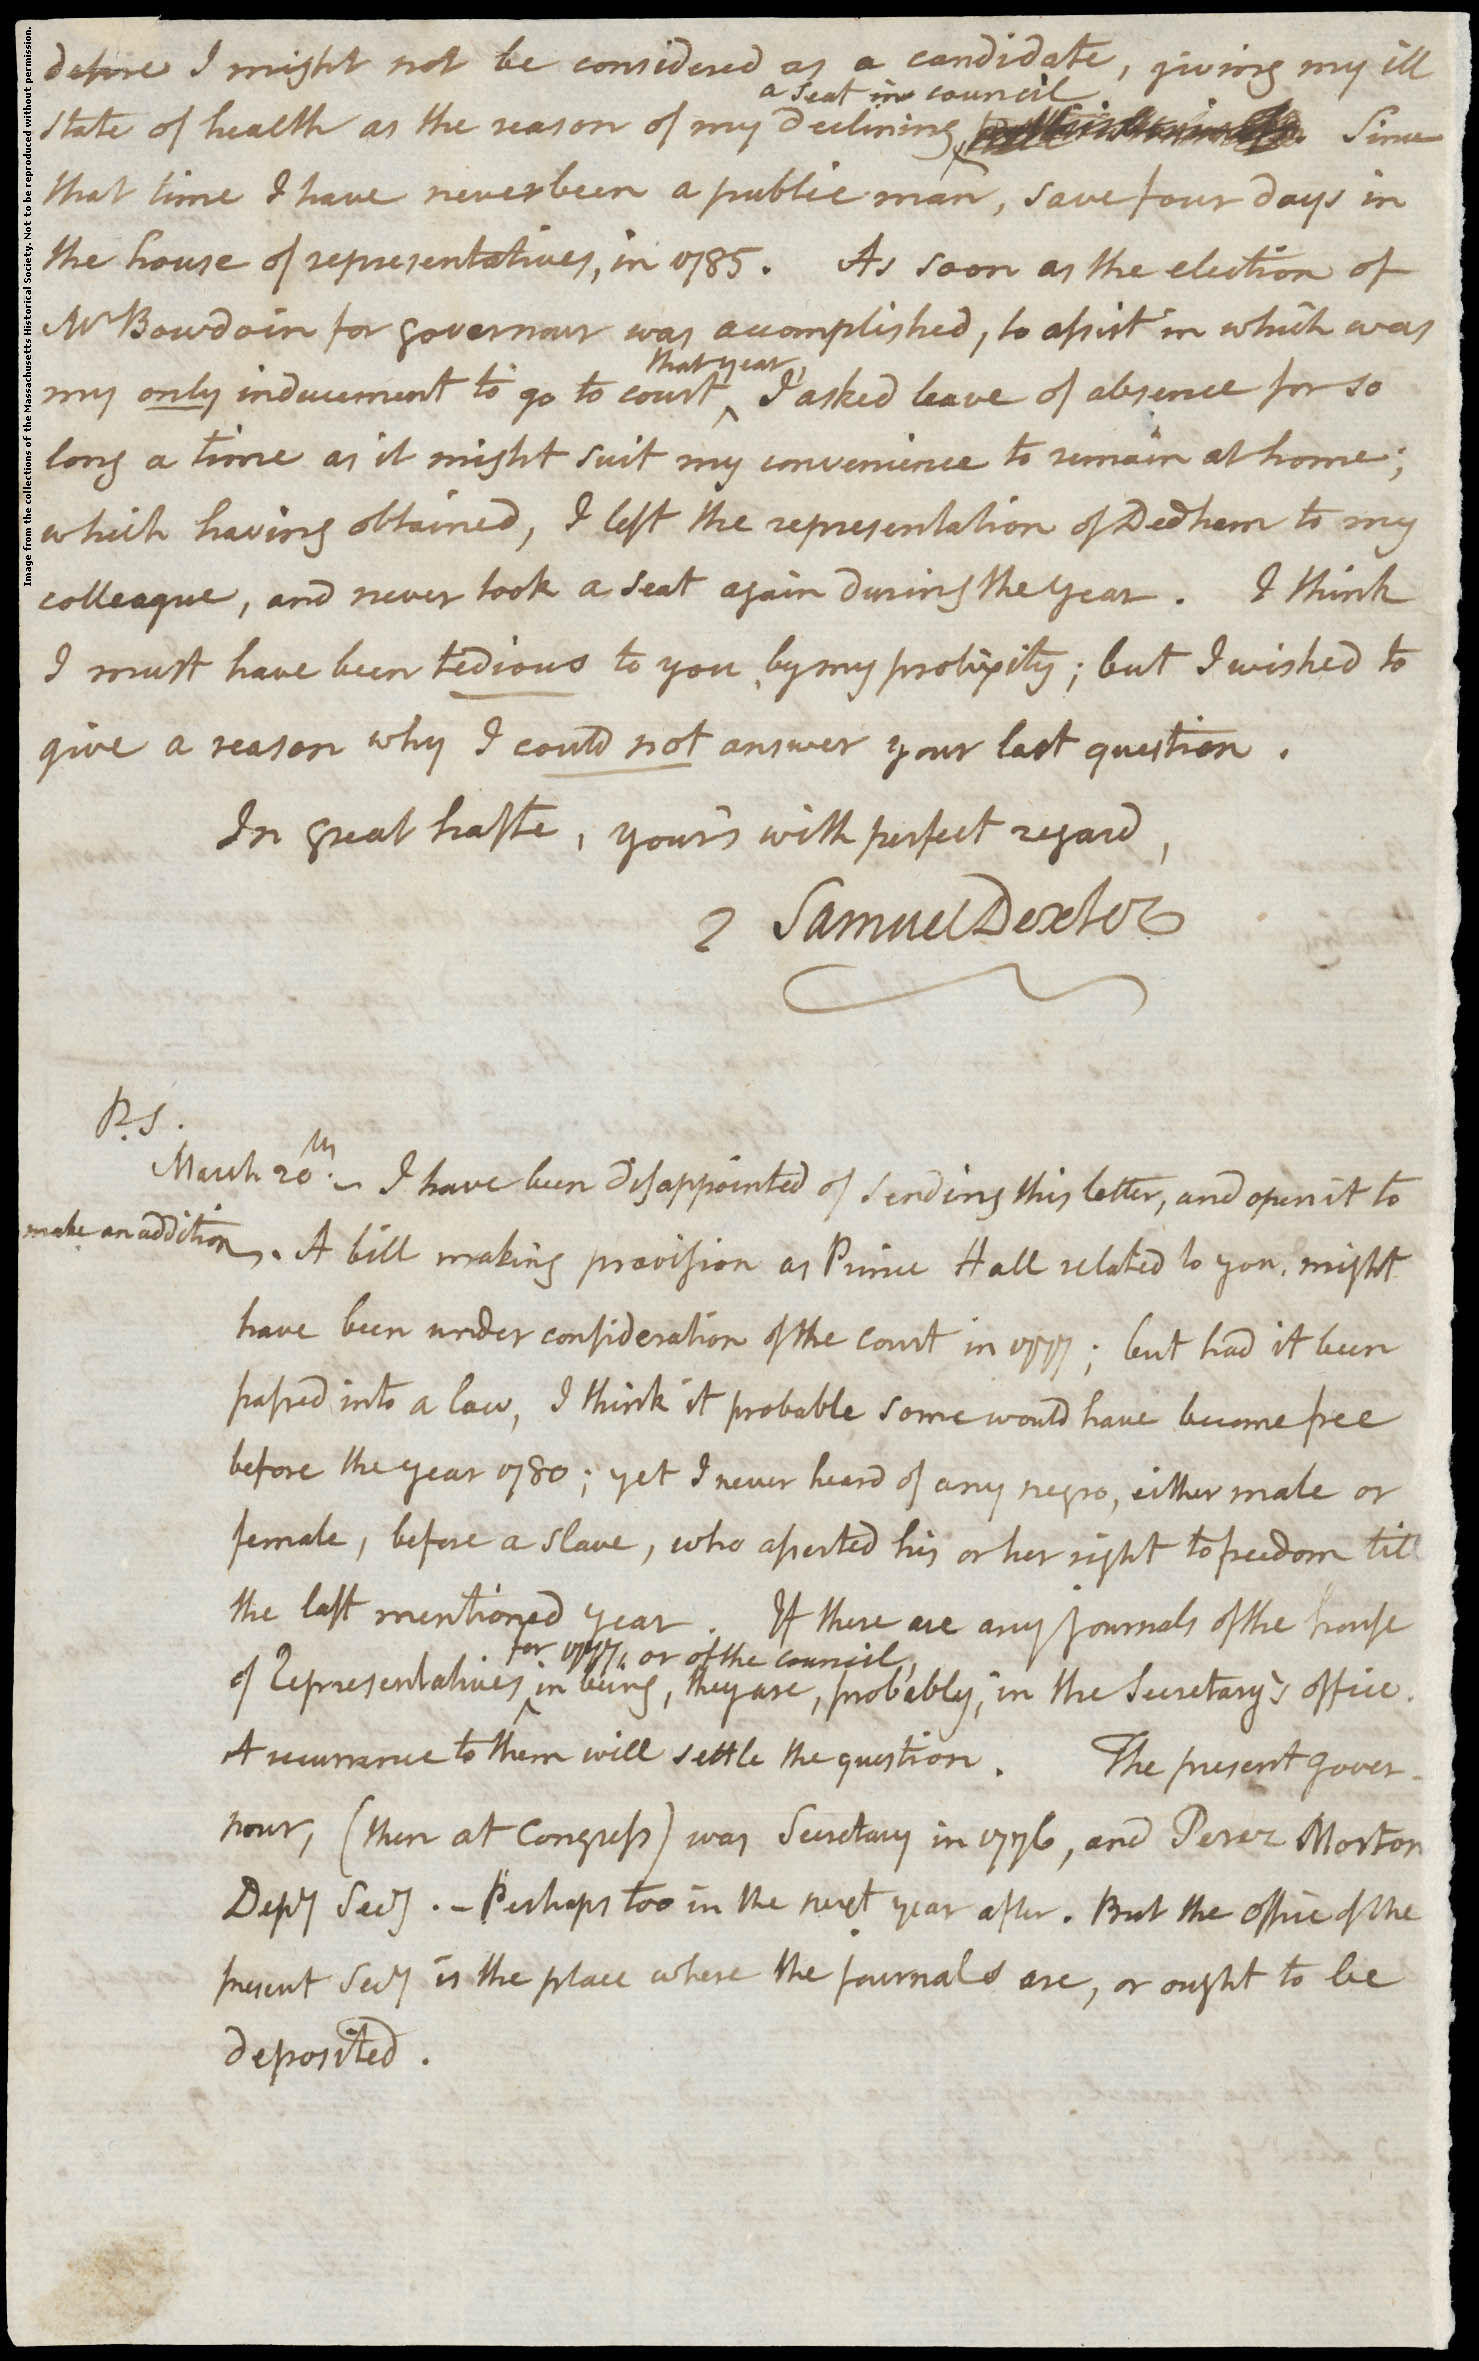 Image from the collections of the Massachusetts Historical Society. Not to be reproduced without permission.
desire I might not be considered as a candidate, giving my ill
a seat in council
state of health as the reason of my declining Since
that time I have never been a public man, save four days in
the house of representatives, in 1785. As soon as the election of
Mr Bowdoin for governour was accomplished, to assist in which was
that year,
my only inducement to go to court ‸ I asked leave of absence for so
long a time as it might suit my convenience to remain at home;
which having obtained, I left the representation of Dedham to my
colleague, and never took a seat again during the year. I think
I must have been tedious to you by my prolixity; but I wished to
give a reason why I could not answer your last question.
In great haste, your's with perfect regard,
Samuel Dexter
P.S.
March 20th. – I have been disappointed of sending this letter, and open it to
make an addition. A bill making provision as Prince Hall related to you, might
have been under consideration of the court in 1777; but had it been
passed into a law, I think it probable some would have become free
before the year 1780; yet I never heard of any negro, either male or
female, before a slave, who asserted his or her right to freedom till
the last mentioned year. If there are any journals of the house
for 1777, or of the council,
of Representatives ‸ in being, they are, probably, in the Secretary's office.
A recurrence to them will settle the question. The present gover-
nour, (then at Congress) was Secretary in 1776, and Perez Morton
Depy Secy. – Perhaps too in the next year after. But the office of the
present Secy is the place where the journals are, or ought to be
deposited.